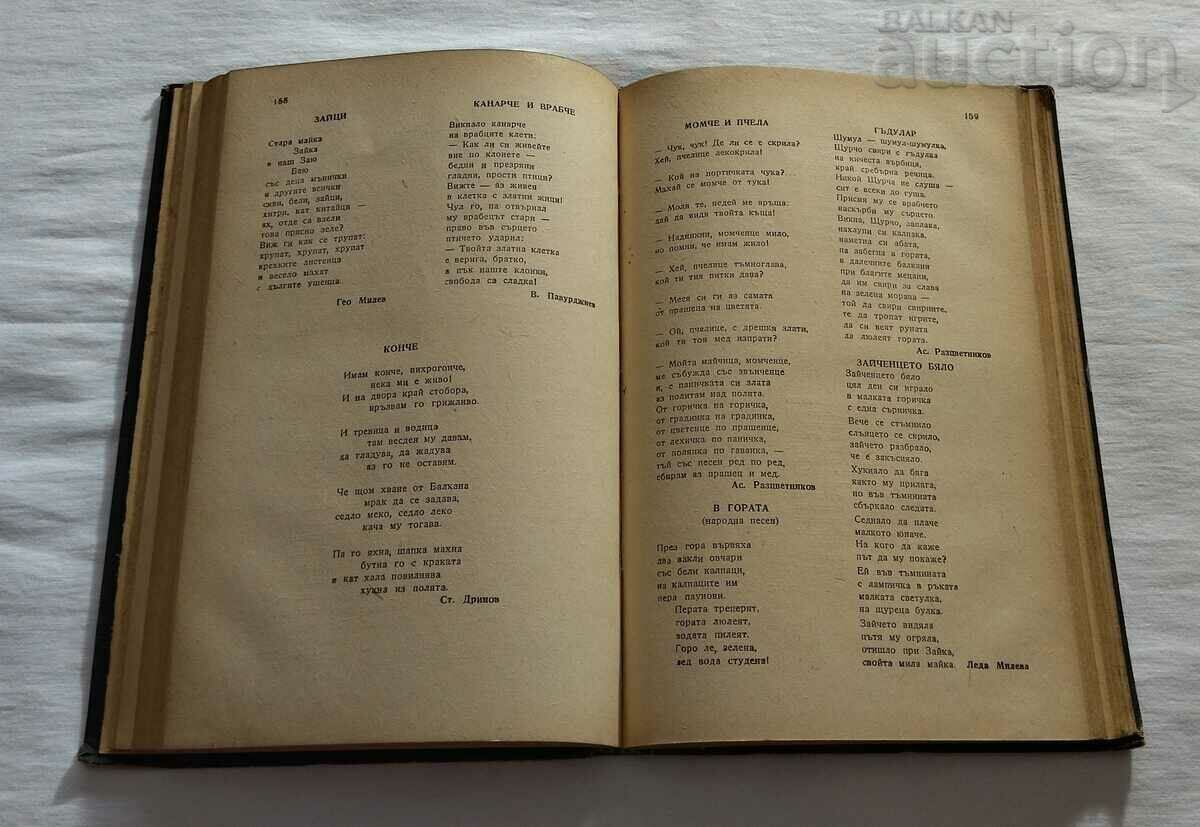 BALKAN
auction
158
ЗАЙЦИ
Стара майка
Зайка
и наш Заю
Баю
със деца мънички
и другите всички
сиви, бели, зайци,
хитри, кат китайци —
ях, отде са взели
това прясно зеле?
Виж ги как се трупат:
хрупат, хрупат, хрупат
крехките листенца
и весело махат
с дългите ушенца.
Гео Милев
КАНАРЧЕ И ВРАБЧЕ
Викнало канарче
на врабците клети:
— Как ли си живейте
вие по клонете —
бедни и презряни
гладни, прости птици?
Вижте — яз живея
в клетка с златни жици!
Чул го, па отвърнал
му врабецът стари —
право във сърцето
птичето ударил:
— Твойта златна клетка
е верига, братко,
а пък наште клонки,
свобода са сладка!
В. Павурджиев
КОНЧЕ
Имам конче, вихрогонче,
нека ми е живо!
И на двора край стобора,
връзвам го грижливо.
И тревица и водица
там весден му давам,
да гладува, да жадува
яз го не оставям.
Че щом хване от Балкана
мрак да се задава,
седло меко, седло леко
кача му тогава.
Па го яхна, шапка махна
бутна го с краката
и кат хала повилнява
хукна из полята.
Ст. Дринов
159
МОМЧЕ И ПЧЕЛА
— Чук, чук! Де ли се е скрила?
Хей, пчелице лекокрила!
— Кой на портичката чука?...
Махай се момче от тука!
— Моля те, недей ме връща:
дай да видя твойта къща!
— Надникни, момченце мило,
но помни, че имам жило!
— Хей, пчелице тъмноглава,
кой ти тия питки дава?
— Меся си ги аз самата
от прашеца на цветята.
— Ой, пчелице, с дрешка злати,
кой ти тоя мед изпрати?
— Мойта майчица, момченце,
ме събужда със звънченце
и, с паничката си злата
аз политам над полята.
От горичка на горичка,
от градинка на градинка,
от цветенце по прашенце,
от лехичка по паничка,
от полянка по гаванка, —
тъй със песен ред по ред,
сбирам аз прашец и мед.
Ас. Разцветников
В ГОРАТА
(народна песен)
През гора вървяха
два вакли овчари
със бели калпаци,
на калпаците им
пера паунови.
Перата треперят,
гората люлеят,
водата пилеят.
Горо ле, зелена,
вед вода студена!
ГЪДУЛАР
Шумул — шумул-шумулка,
Щурчо свири с гъдулка
на кичеста върбица,
край сребърна речица.
Никой Щурча не слуша —
сит е всеки до гуша.
Присмя му се врабчето
наскърби му сърцето.
Викна, Щурчо, заплака,
нахлупи си калпака,
наметна си абата,
па забегна в гората,
в далечните балкани
при благите мецани,
да им свири за слава
на зелена морава —
той да свири свирните,
те да тропат игрите,
да си веят руната
да люлеят гората.
Ас. Разцветников
ЗАЙЧЕНЦЕТО БЯЛО
Зайченцето бяло
цял ден си играло
в малката горичка
с една сърничка.
Вече се стъмнило
слънцето се скрило,
зайчето разбрало,
че е закъсняло.
Хукнало да бяга
както му приляга,
но във тъмнината
сбъркало следата.
Седнало да плаче
малкото юначе.
На кого да каже
път да му покаже?
Ей във тъмнината
с лампичка в ръката
малката светулка,
на щуреца булка.
Зайчето видяла
пътя му огряла,
отишло при Зайка,
свойта мила майка. Леда Милева